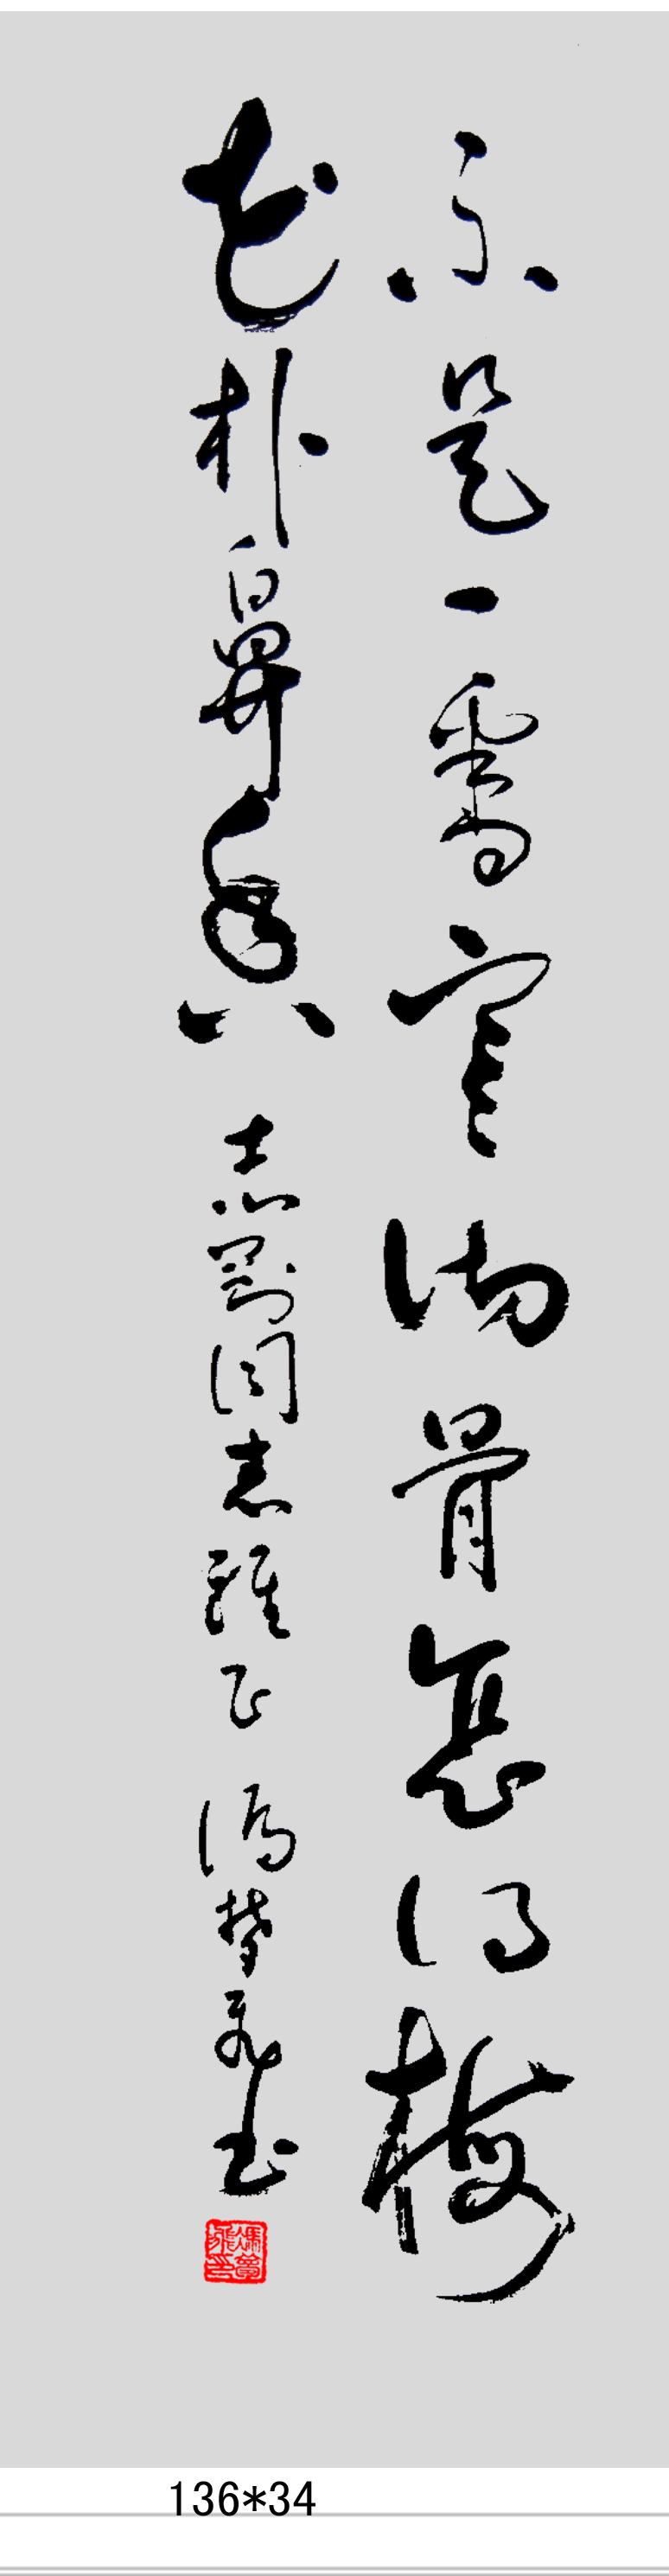 不是一番寒彻骨怎得梅
花朴鼻香 志刚同志雅正 冯梦飞书
136*34